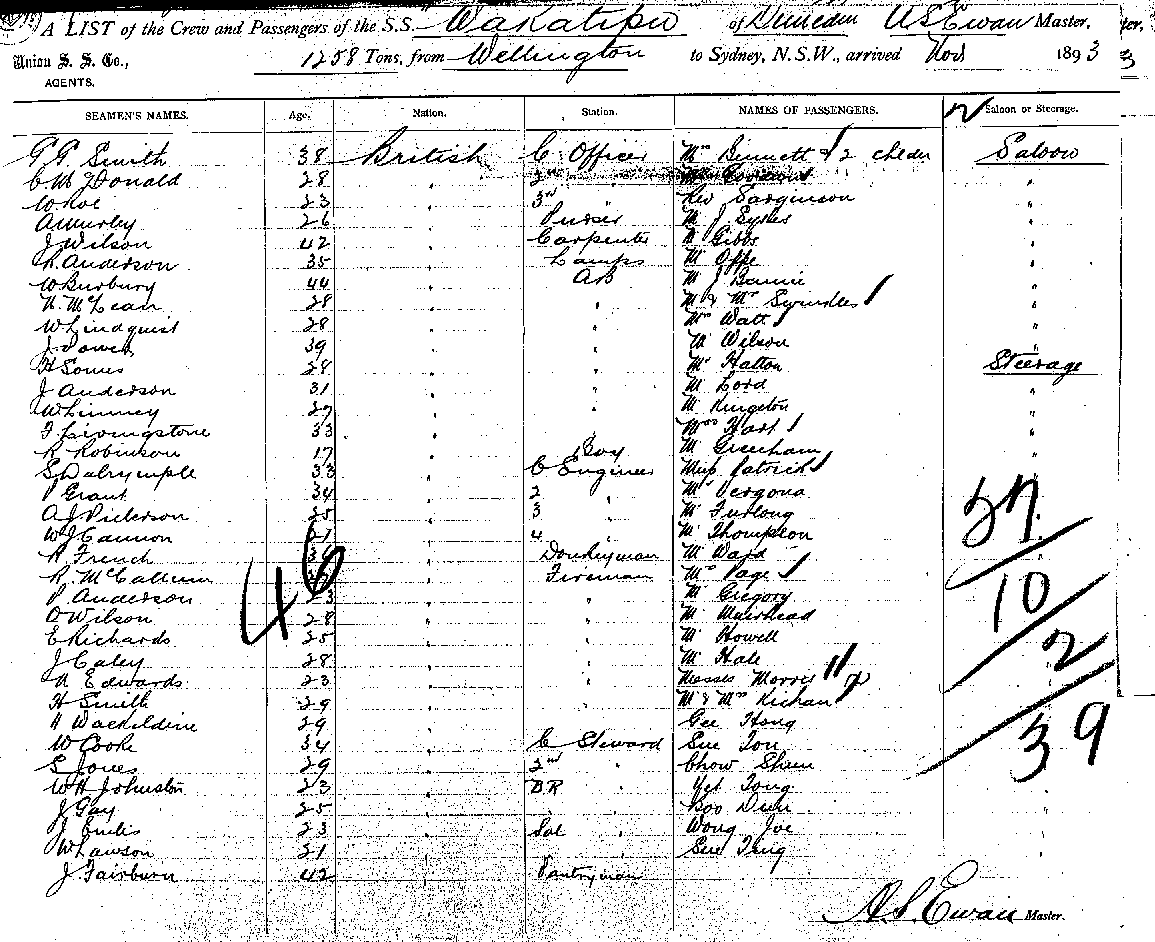 A LIST of the Crew and Passengers of the S.S. Wakatipu of Dunedin A S Ewan Master,
Union S. S. Co., AGENTS. 1258 Tons, from Wellington to Sydney, N.S.W., arrived Nov 1893
SEAMEN'S NAMES. Age. Nation. Station. NAMES OF PASSENGERS. Saloon or Steerage.
Smith 38 British C Officer Mrs Bennett & 2 Saloon
C McDonald 28 " 2nd "
W Roe 23 " 3rd Rev Sarginson "
26 " Purser Mr J "
J Wilson 42 " Carpenter Mr Gibbs "
R Anderson 35 " Lamps Mr "
W Burbury 44 " AB Mr J "
N McLean 28 " " Mr & Mrs Swindles "
W Lindquist 28 " " Mrs Watt "
J Power 39 " " Mr Wilson "
H Somes 28 " " Mr Hatton Steerage
J Anderson 31 " " Mr Lord "
W Linney 27 " " Mr Kingston "
Livingstone 33 " " Mrs Hart "
R Robinson 17 " Boy Mr Greenham "
S Dalrymple 33 " C Engineer Miss Patrick "
P Grant 34 " 2 " Mr
A J Pickerson 25 " 3 " Mr Furlong
W J Cannon 21 " 4 " Mr Thompson
R French " Donkeyman Mr Ward
R McCallum " Fireman Mrs Page
P Anderson 23 " " Mr Gregory
O Wilson 28 " " Mr Muirhead
E Richards 25 " " Mr Howell
J Caley 28 " " Mr Hale
N Edwards 23 " " Misses Morris
H Smith 29 " " Mr & Mrs
H 29 " " Gee Hong
W Cooke 34 " C Steward Sue
S Jones 29 " 2nd " Chow
W H Johnston 23 " BR " Yet Tong
J Gay 25 "
J Curtis 23 " Sal " Wong Joe
W Lawson 21 " Sue
J Fairburn 42 " Pantryman
46
37
10
2
39
A. S. Ewan Master.